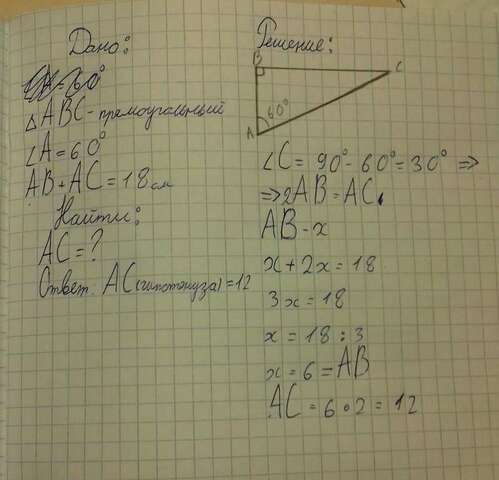 Дано:
△ABC - прямоугольный
∠A = 60°
AB + AC = 18 см
Найти:
AC = ?
Ответ. AC (гипотонуза) = 12
Решение:
B
C
60°
A
∠C = 90° - 60° = 30° =>
=> 2AB = AC.
AB - x
x + 2x = 18
3x = 18
x = 18 : 3
x = 6 = AB
AC = 6 • 2 = 12